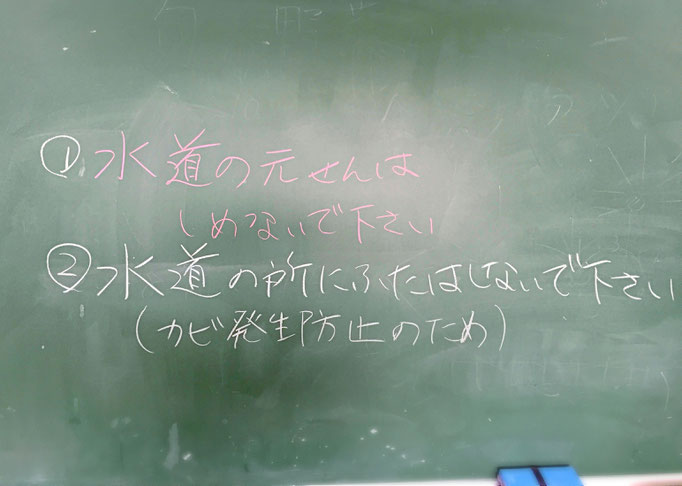 ①水道の元せんは
しめないで下さい
②水道の所にふたはしないで下さい
(カビ発生防止のため)